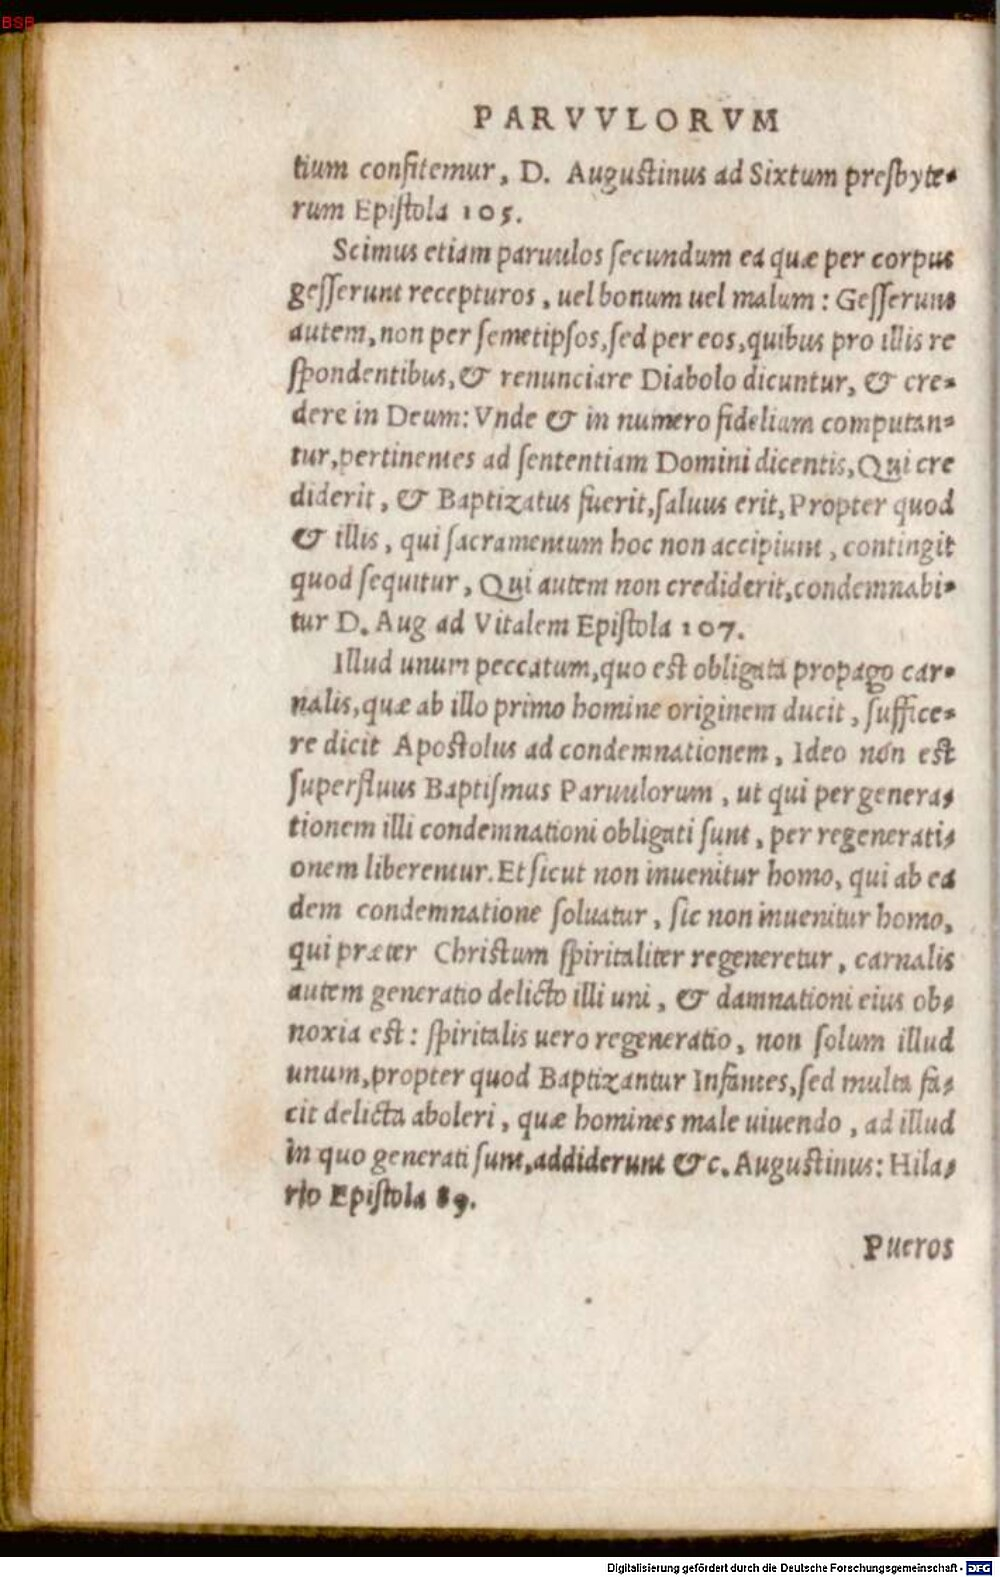 BSB
PARVVLORVM
tium confitemur, D. Augustinus ad Sixtum presbyte-
rum Epistola 105.
Scimus etiam paruulos secundum ea quæ per corpus
gesserunt recepturos, uel bonum uel malum: Gesserunt
autem, non per semetipsos, sed per eos, quibus pro illis re
spondentibus, & renunciare Diabolo dicuntur, & cre-
dere in Deum: Vnde & in numero fidelium computan-
tur, pertinentes ad sententiam Domini dicentis, Qui cre
diderit, & Baptizatus fuerit, saluus erit, Propter quod
& illis, qui sacramentum hoc non accipiunt, contingit
quod sequitur, Qui autem non crediderit, condemnabi-
tur D. Aug ad Vitalem Epistola 107.
Illud unum peccatum, quo est obligata propago car-
nalis, quæ ab illo primo homine originem ducit, suffice-
re dicit Apostolus ad condemnationem, Ideo non est
superfluus Baptismus Paruulorum, ut qui per genera-
tionem illi condemnationi obligati sunt, per regenerati-
onem liberentur. Et sicut non inuenitur homo, qui ab ea
dem condemnatione soluatur, sic non inuenitur homo,
qui præter Christum spiritaliter regeneretur, carnalis
autem generatio delicto illi uni, & damnationi eius ob-
noxia est: spiritalis uero regeneratio, non solum illud
unum, propter quod Baptizantur Infantes, sed multa fa-
cit delicta aboleri, quæ homines male uiuendo, ad illud
in quo generati sunt, addiderunt &c. Augustinus: Hila-
rio Epistola 89.
Pueros
Digitalisierung gefördert durch die Deutsche Forschungsgemeinschaft - DFG